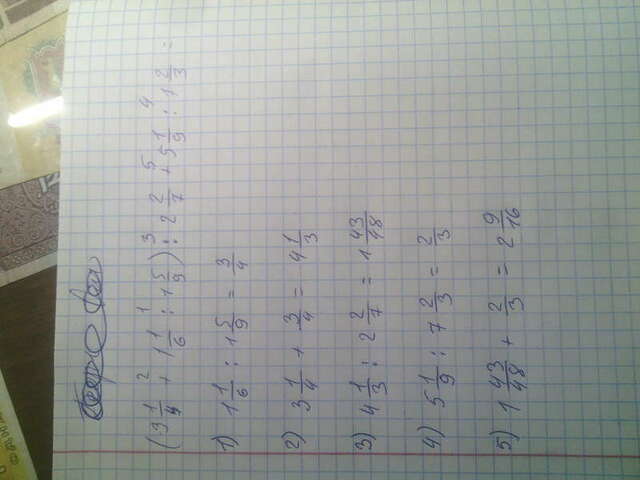 2 1 3 5 4
(3 1/4 + 1 1/6 : 1 5/9) : 2 2/7 + 5 1/9 : 7 2/3 =
1) 1 1/6 : 1 5/9 = 3/4
2) 3 1/4 + 3/4 = 4 1/3
3) 4 1/3 : 2 2/7 = 1 43/48
4) 5 1/9 : 7 2/3 = 2/3
5) 1 43/48 + 2/3 = 2 9/16